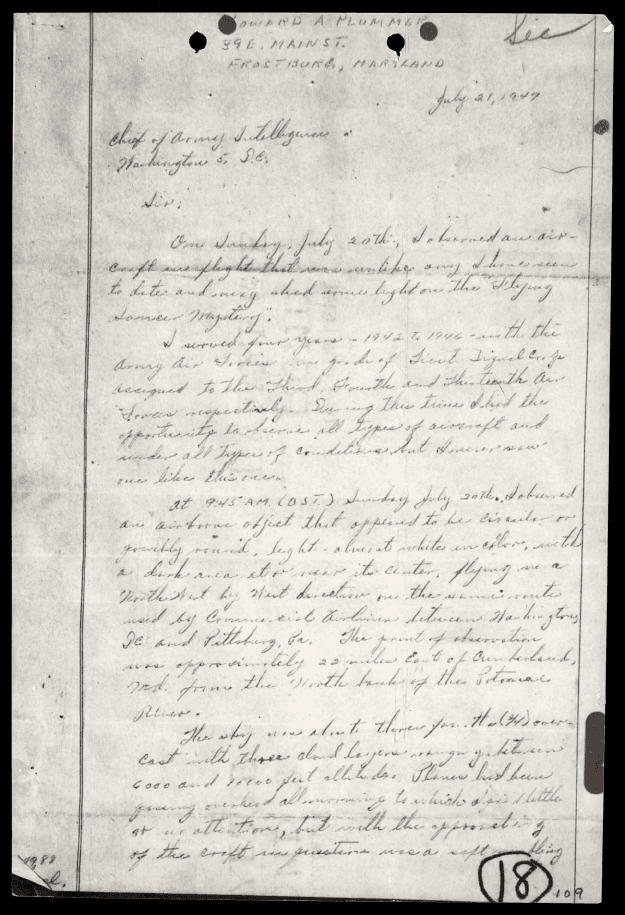 HOWARD A PLUMMER
39 E. MAIN ST.
FROSTBURG, MARYLAND
Sec
July 21, 1947
Chief of Army Intelligence
Washington 5, D.C.
Sir:
On Sunday, July 20th, I observed an air-
craft in flight that was unlike any I have seen
to date and may shed some light on the "Flying
Saucer Mystery".
I served four years - 1942 to 1946 - with the
Army Air Forces in grade of Lieut Signal Corps
assigned to the Third, Fourth and Thirteenth Air
Forces respectively. During this time I had the
opportunity to observe all types of aircraft and
under all types of conditions but I never saw
one like this one.
At 9:45 A.M. (DST.) Sunday July 20th. I observed
an airborne object that appeared to be circular or
possibly round, light - almost white in color, with
a dark area at or near its center, flying in a
North West by West direction on the same route
used by Commercial Airlines between Washington,
DC and Pittsburg, Pa. The point of observation
was approximately 22 miles East of Cumberland,
Md. from the North bank of the Potomac
River.
The sky was about three fourths (3/4) over-
cast with three cloud layers ranging between
6000 and 10000 feet altitude. Planes had been
passing overhead all morning to which I paid little
or no attention, but with the approaching
of the craft in question was a soft
18
109
1988